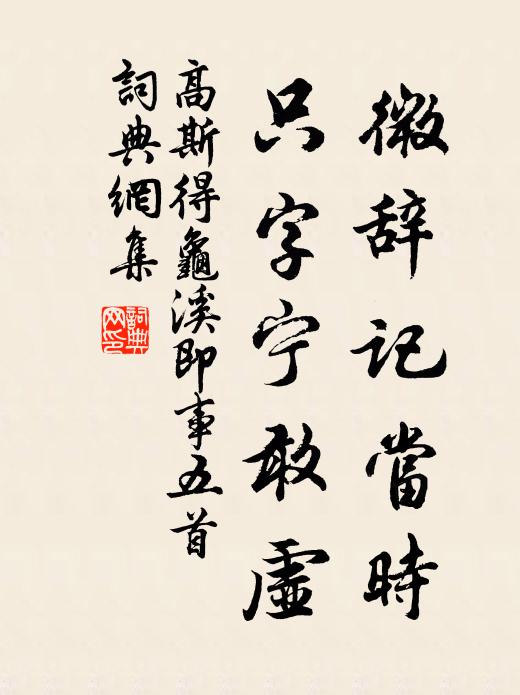 微辞记當時
只字宁敢虚
高斯得龜溪即事五首
詞典網集
詞典
网印